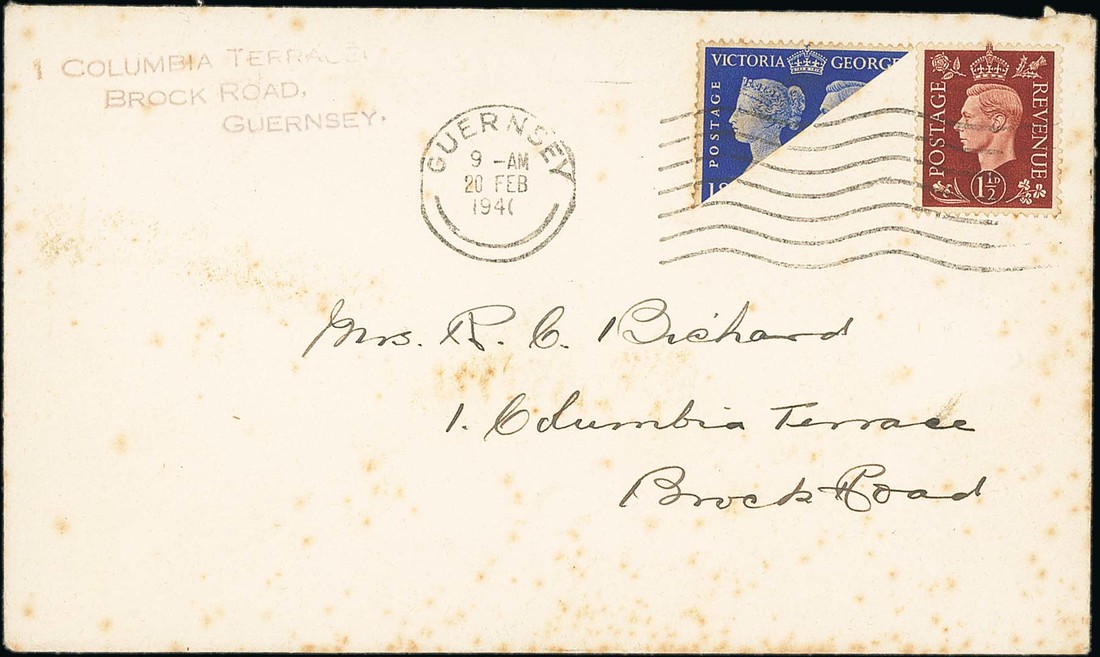 1 COLUMBIA TERRACE,
BROCK ROAD,
GUERNSEY.
GUERNSEY
9 -AM
20 FEB
194
VICTORIA GEORGE
POSTAGE
18
POSTAGE
REVENUE
1½D
Mrs. R. C. Bichard
1. Columbia Terrace
Brock Road